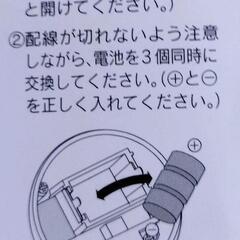 と開けてください。)
②配線が切れないよう注意
しながら、電池を3個同時に
交換してください。(⊕と⊖
を正しく入れてください。)
⊕